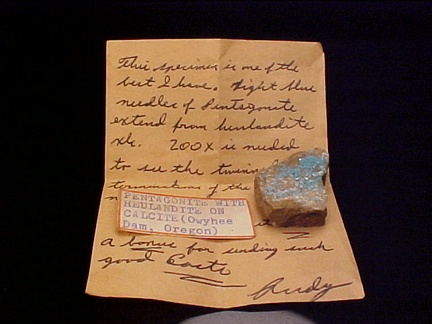 This specimen is one of the
best I have. Light blue
needles of Pentagonite
extend from heulandite
xls. 200X is needed
to see the twinned
terminations of the
PENTAGONITE WITH
HEULANDITE ON
CALCITE (Owyhee
Dam, Oregon)
a bonus for sending such
good
Rudy